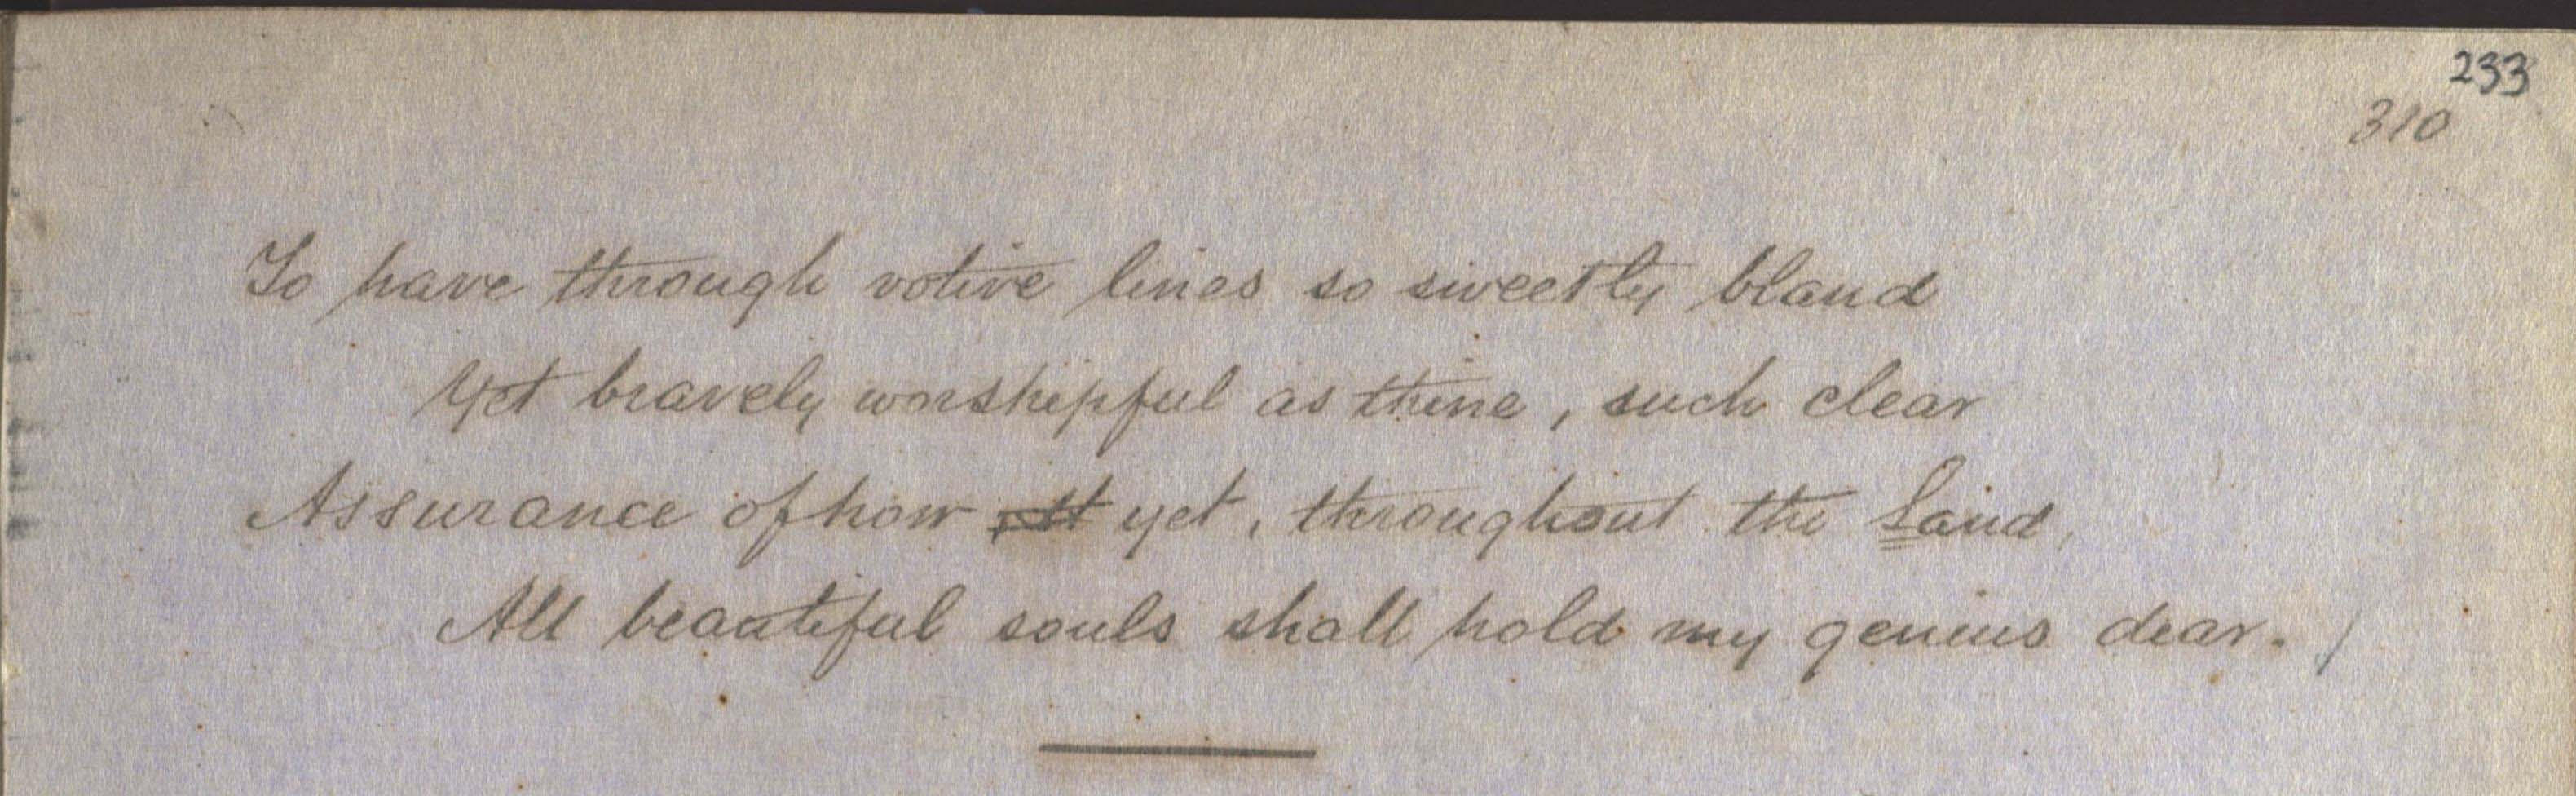 233
310
To have through votive lines so sweetly bland
Yet bravely worshipful as thine, such clear
Assurance of how yet, throughout the Land,
All beautiful souls shall hold my genius dear.